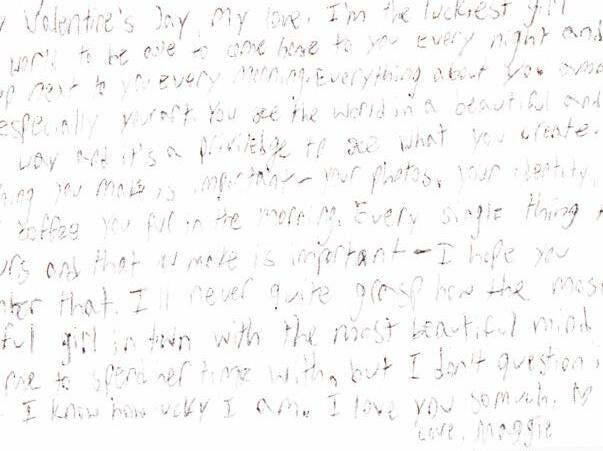 Valentine's Day, my love. I'm the luckiest girl
world to be able to come home to you every night and
up next to you every morning. Everything about you
especially your art. You see the world in a beautiful and
way and it's a priviledge to see what you create.
you make is important - your photos, your identity,
coffee you in the morning. Every single thing
and that make is important - I hope you
that. I'll never quite grasp how the most
girl in town with the most beautiful mind
me to spend her time with, but I don't question
I know how ucky I am. I love you so much. ♡
Love, Maggie